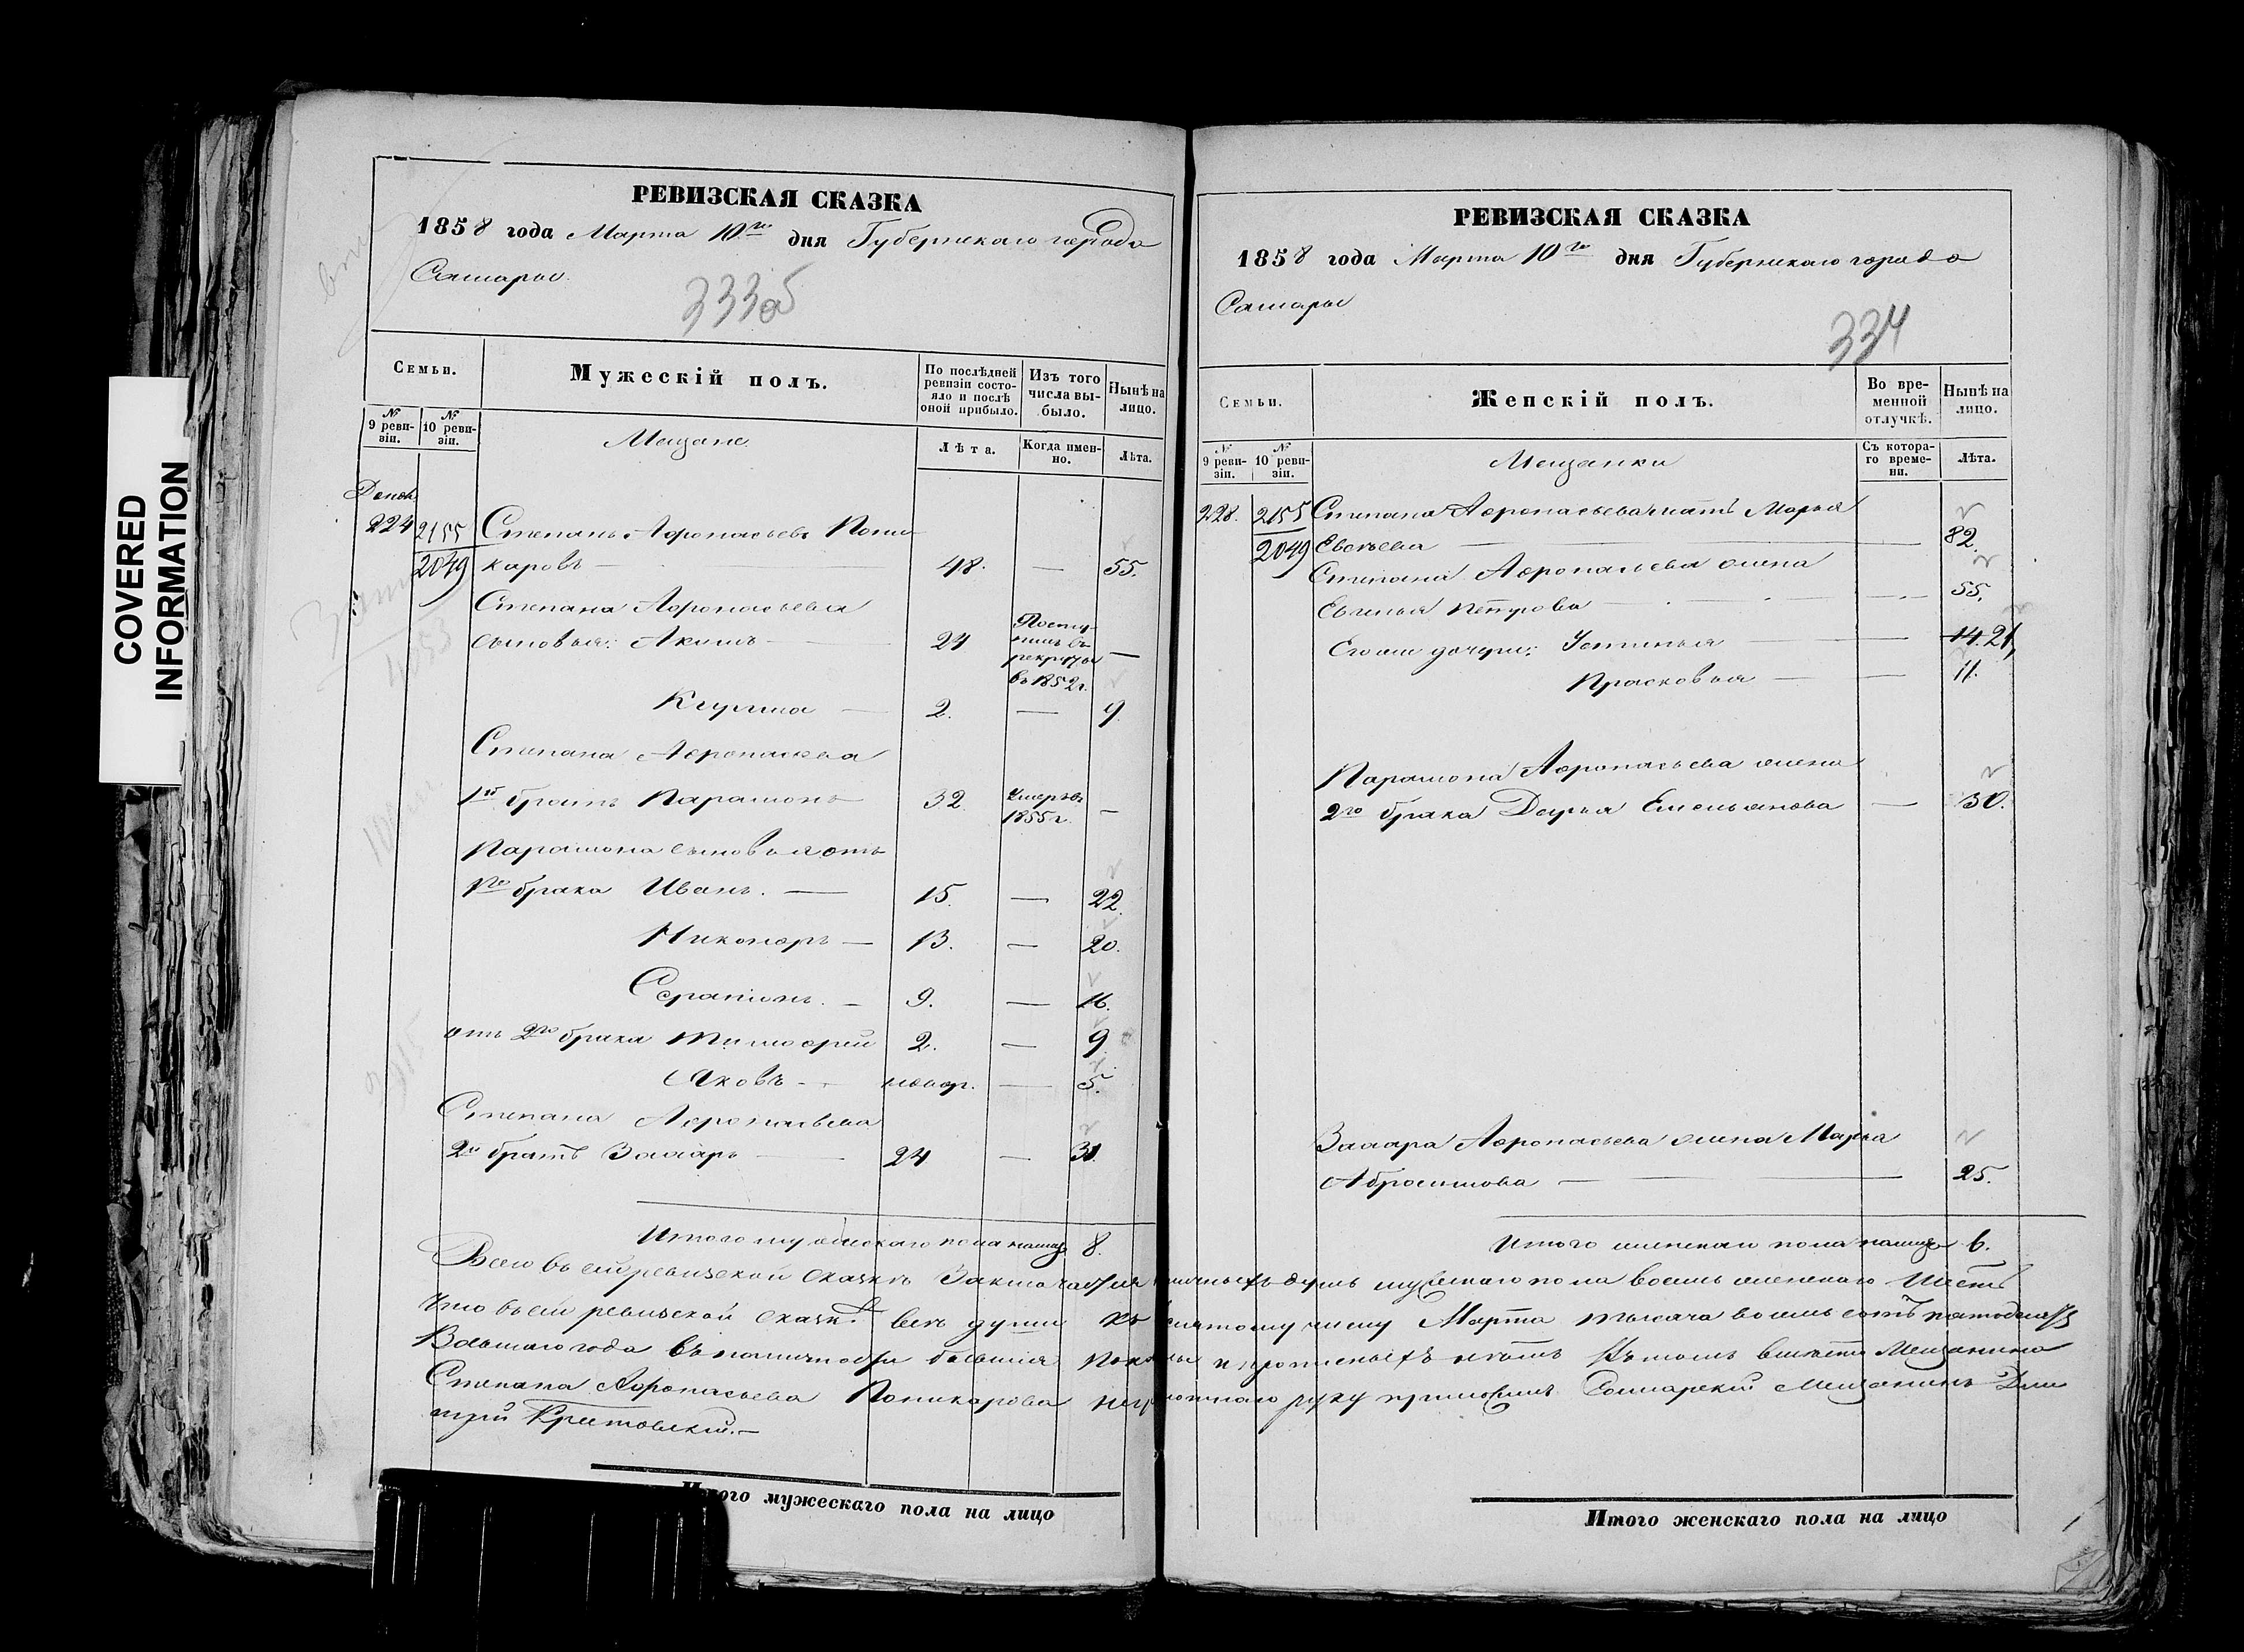 COVERED
INFORMATION
РЕВИЗСКАЯ СКАЗКА
1858 года Марта 10го дня Губернскаго города
Самары.
333об
Семьи.
Мужескій полъ.
По послѣдней ревизіи состояло и послѣ оной прибыло.
Изъ того числа выбыло.
Нынѣ на лицо.
№ 9 ревизіи.
№ 10 ревизіи.
Мещане.
Лѣта.
Когда именно.
Лѣта.
224 2155 Степанъ Афонасьевъ Поли
2049 каровъ — 48. — 55.
Степана Афонасьева
сыновья: Акимъ — 24 Поступилъ въ рекруты въ 1852 г. —
Кузма — 2. — 9.
Степана Афонасьева
1й братъ Парамонъ 32. Умеръ въ 1855 г. —
Парамона сыновья отъ
1го брака Иванъ. — 15. — 22.
Никоноръ — 13. — 20.
Серапіонъ. — 9. — 16.
отъ 2го брака Тимофей 2. — 9.
Яковъ — новор. — 5.
Степана Афонасьева
2й братъ Захаръ — 24 — 31.
Итого мужескаго пола налицо 8.
РЕВИЗСКАЯ СКАЗКА
1858 года Марта 10го дня Губернскаго города
Самары
334
Семьи.
Женскій полъ.
Во временной отлучкѣ.
Нынѣ на лицо.
№ 9 ревизіи.
№ 10 ревизіи.
Мещанки
Съ котораго времени.
Лѣта.
228. 2155 Степана Афонасьева мать Марья
2049 — 82.
Степана Афонасьева жена
Евгенья Петрова — 55.
Его же дочери: Устинья — 14. 21,
Прасковья — — 11.
Парамона Афонасьева жена
2го брака Дарья Емельянова — 30.
Захара Афонасьева жена Марья
Абросимова — 25.
Итого женскаго пола налицо 6.
Всего въ сей ревизской сказкѣ Заключается наличныхъ душъ мужескаго пола восемь женскаго шесть
Что въ сей ревизской сказкѣ всѣ души къ десятому числу Марта тысяча восемь сотъ пятьдесятъ
Восьмаго года въ наличности бывшія показаны и прописныхъ нѣтъ Въ томъ вмѣсто Мещанина
Степана Афонасьева Поликарова неграмотнаго руку приложилъ Самарскій Мещанинъ Дми
трій
Итого мужескаго пола на лицо
Итого женскаго пола на лицо